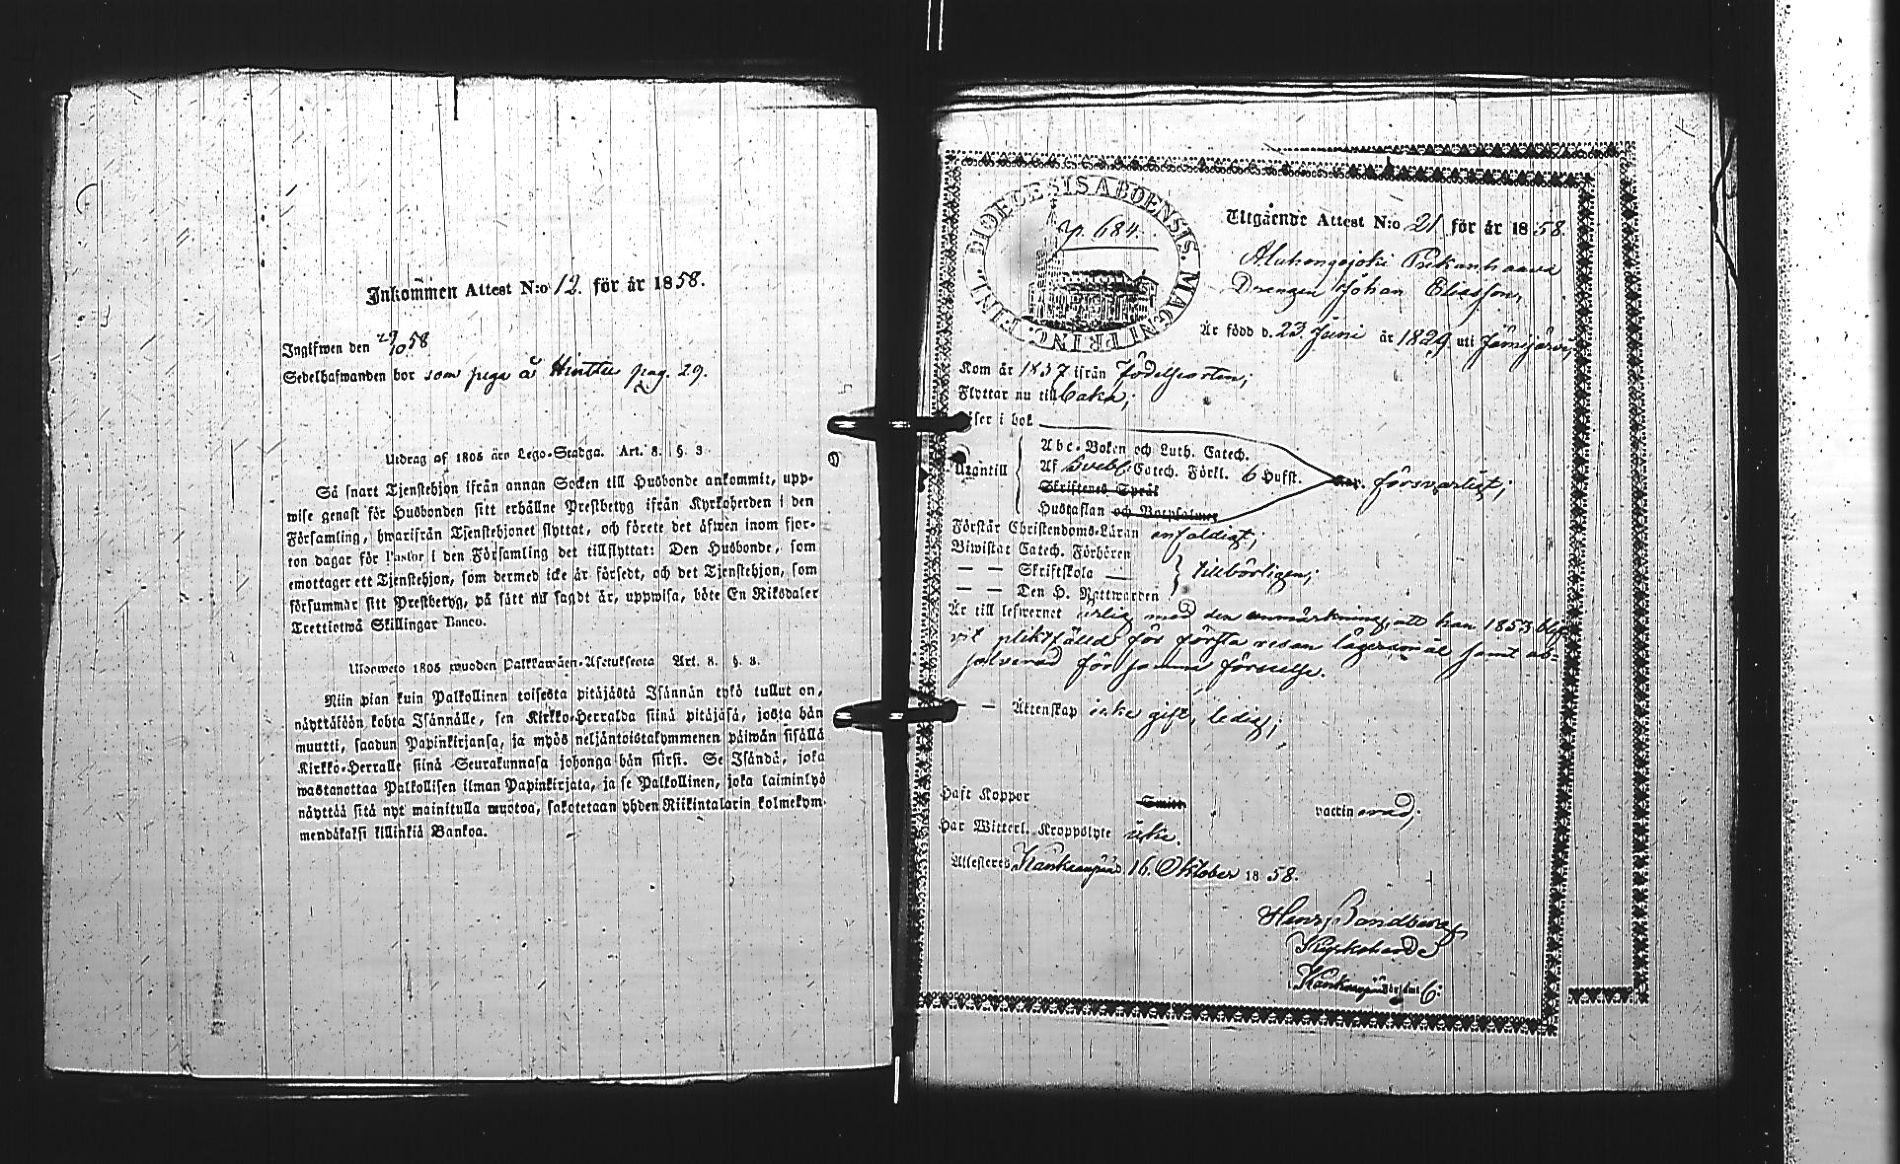 Inkommen Attest N:o 12. för år 1858.
Ingifwen den 29/10 58
Sedelhafwanden bor som piga å Hinttu pag. 29.
Utdrag af 1805 års Lego-Stadga. Art. 8. §. 3
Så snart Tjenstehjon ifrån annan Socken till Husbonde ankommit, upp-
wise genast för Husbonden sitt erhållne Prestbetyg ifrån Kyrkoherden i den
Församling, hwarifrån Tjenstehjonet flyttat, och förete det äfwen inom fjor-
ton dagar för Pastor i den Församling det tillflyttat: Den Husbonde, som
emottager ett Tjenstehjon, som dermed icke är försedt, och det Tjenstehjon, som
försummar sitt Prestbetyg, på sätt nu sagdt är, uppwisa, böte En Riksdaler
Trettiotwå Skillingar Banco.
Ulosweto 1805 wuoden Palkkawäen-Asetuksesta Art. 8. §. 3.
Niin pian kuin Palkollinen toisesta pitäjästä Isännän tykö tullut on,
näyttäköön kohta Isännälle, sen Kirkko-Herralda siinä pitäjäsä, josta hän
muutti, saadun Papinkirjansa, ja myös neljäntoistakymmenen päiwän sisällä
Kirkko-Herralle siinä Seurakunnasa johonga hän siirsi. Se Isändä, joka
wastanottaa Palkollisen ilman Papinkirjata, ja se Palkollinen, joka laiminlyö
näyttää sitä nyt mainitulla muotoa, sakotetaan yhden Riikintalarin kolmekym-
mendäkaksi killinkiä Bankoa.
DIOECESIS ABOENSIS. MAGNI PRINC. FINL.
p. 684.
Utgående Attest N:o 21 för år 1858.
Drengen Johan Eliasson,
Är född d. 23 Juni år 1829 uti Jämijärvi;
Kom år 1857 ifrån födelseorten;
Flyttar nu tillbaka;
Läser i bok
Utantill
Abc-Boken och Luth. Catech.
Af Svebl. Catech. Förkl. 6 Hufst.
Skriftenes Språk
Hustaflan och Botpsalmer
försvarligt;
Förstår Christendoms-Läran enfaldigt;
Biwistat Catech. Förhören
— — Skriftskola —
— — Den H. Nattwarden
tillbörligen;
Är till lefwernet ärlig med den anmärkning, att han 1853 blif-
vit pliktfälld för första resan lägersmål samt ab-
solverad för samma förseelse.
— — Äktenskap icke gift, ledig;
Haft Koppor
Smitt
vaccinerad;
Har Witterl. Kroppslyte icke.
Attesteras Kankaanpää 16. Oktober 1858.
Kyrkoherde